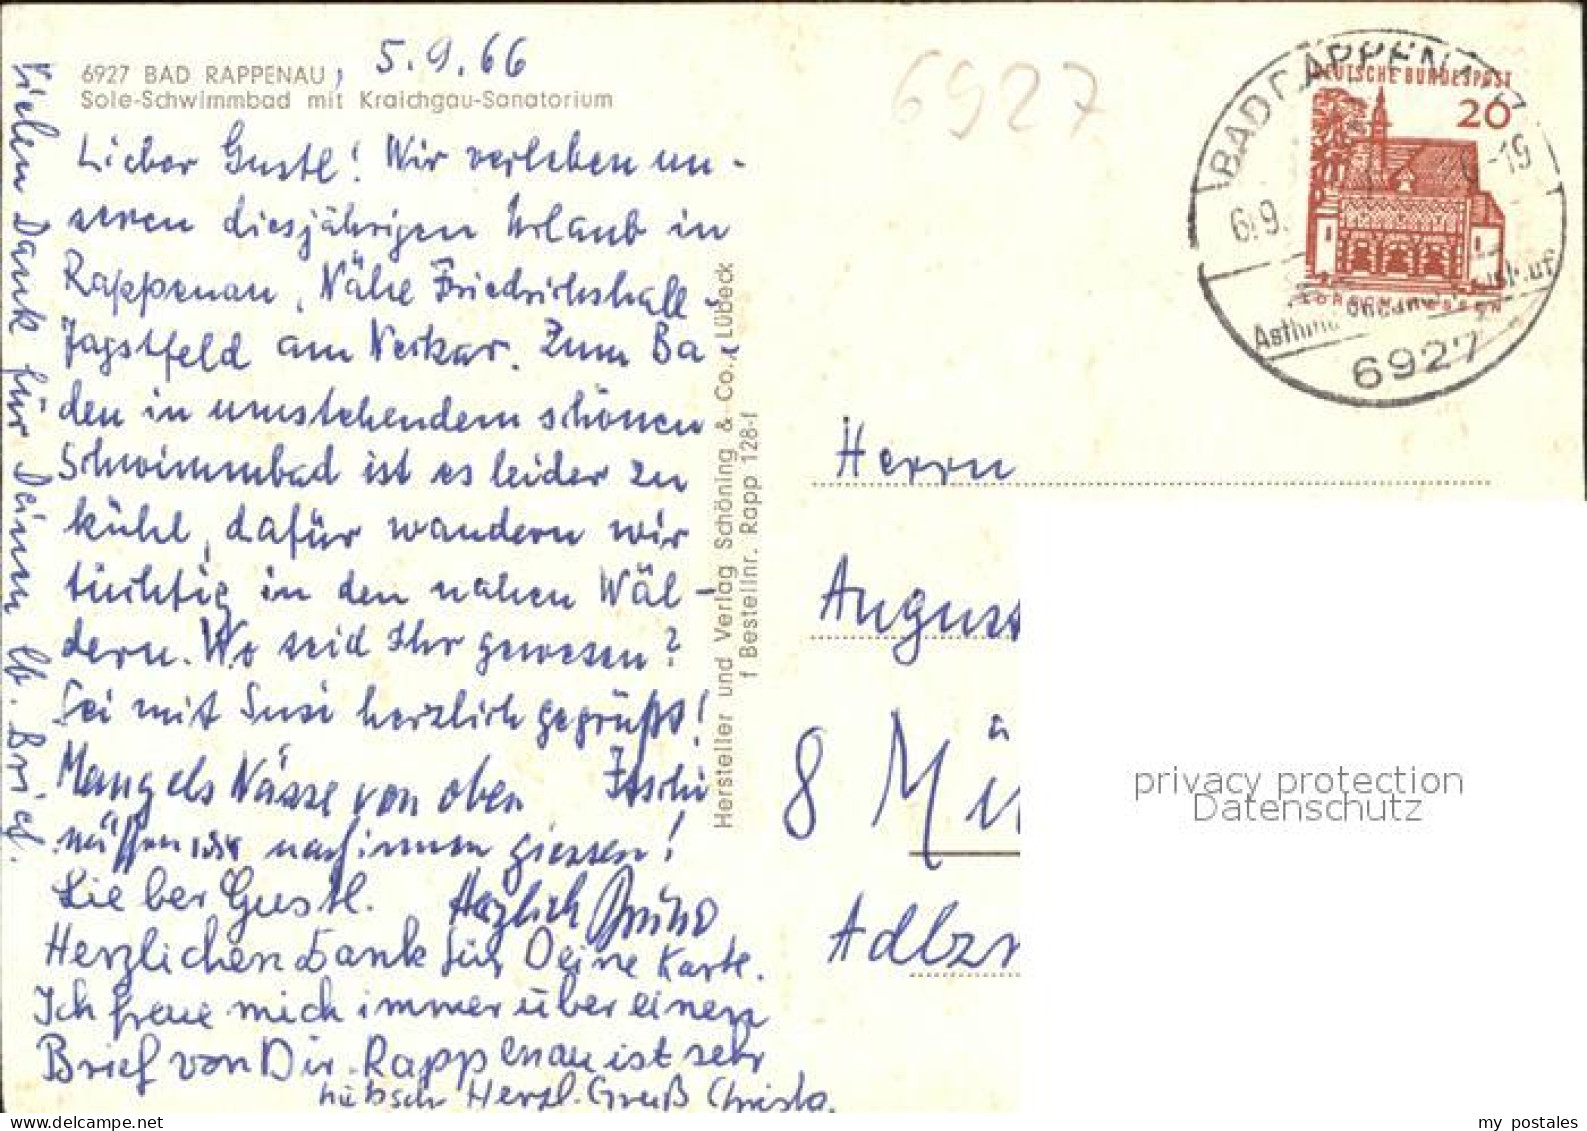 6927 BAD RAPPENAU, 5.9.66
Sole-Schwimmbad mit Kraichgau-Sanatorium
Lieber Gustl! Wir verleben un-
seren diesjährigen Urlaub in
Rappenau, Nähe Friedrichshall-
Jagstfeld am Neckar. Zum Ba-
den in umstehendem schönen
Schwimmbad ist es leider zu
kühl, dafür wandern wir
tüchtig in den nahen Wäl-
dern. Wo seid Ihr gewesen?
Sei mit Susi herzlich gegrüßt!
Mangels Nässe von oben
müssen wir nach innen giessen!
Herzlich
Lieber Gustl.
Herzlichen Dank für Deine Karte.
Ich freue mich immer über einen
Brief von Dir. Rappenau ist sehr
hübsch Herzl. Gruß Christa.
Vielen Dank für Deinen lb. Brief.
Hersteller und Verlag Schöning & Co., Lübeck
f Bestellnr. Rapp 128-f
6927
DEUTSCHE BUNDESPOST
20
LORSCH HESSEN
BAD RAPPENAU
6.9.
-19
6927
Herrn
August
8 Mü
Adlzr
privacy protection
Datenschutz
my postales